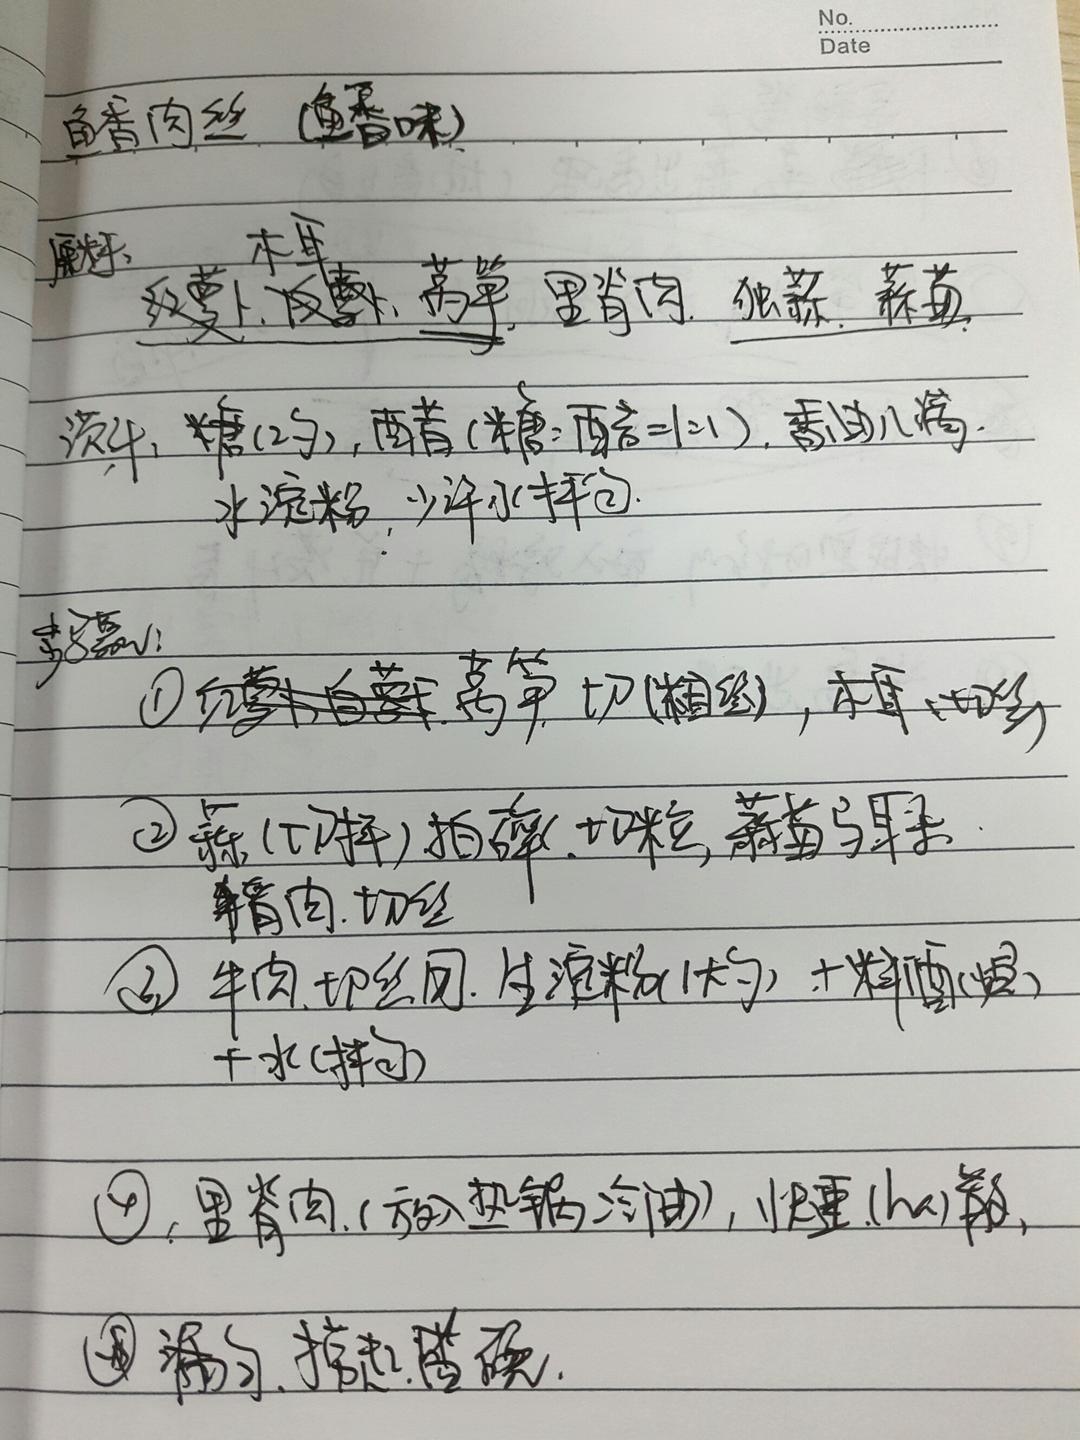 No.
Date
鱼香肉丝 (鱼香味)
原料: 木耳
红萝卜、白萝卜、莴笋、里脊肉、独蒜、蒜苗、
滋汁: 糖(2勺), 醋(糖:醋=1:1), 香油几滴.
水淀粉, 少许水拌匀.
步骤:
① 莴笋 切(粗丝), 木耳、切丝,
② 蒜(切拌) 拍碎、切粒, 蒜苗与耳
脊肉、切丝
③ 牛肉、切丝同、生淀粉(1大勺) + 料酒
+ 水(拌匀)
④、里脊肉、(放入热锅冷油), (ha)散、
⑤ 漏勺、捞起、碗.